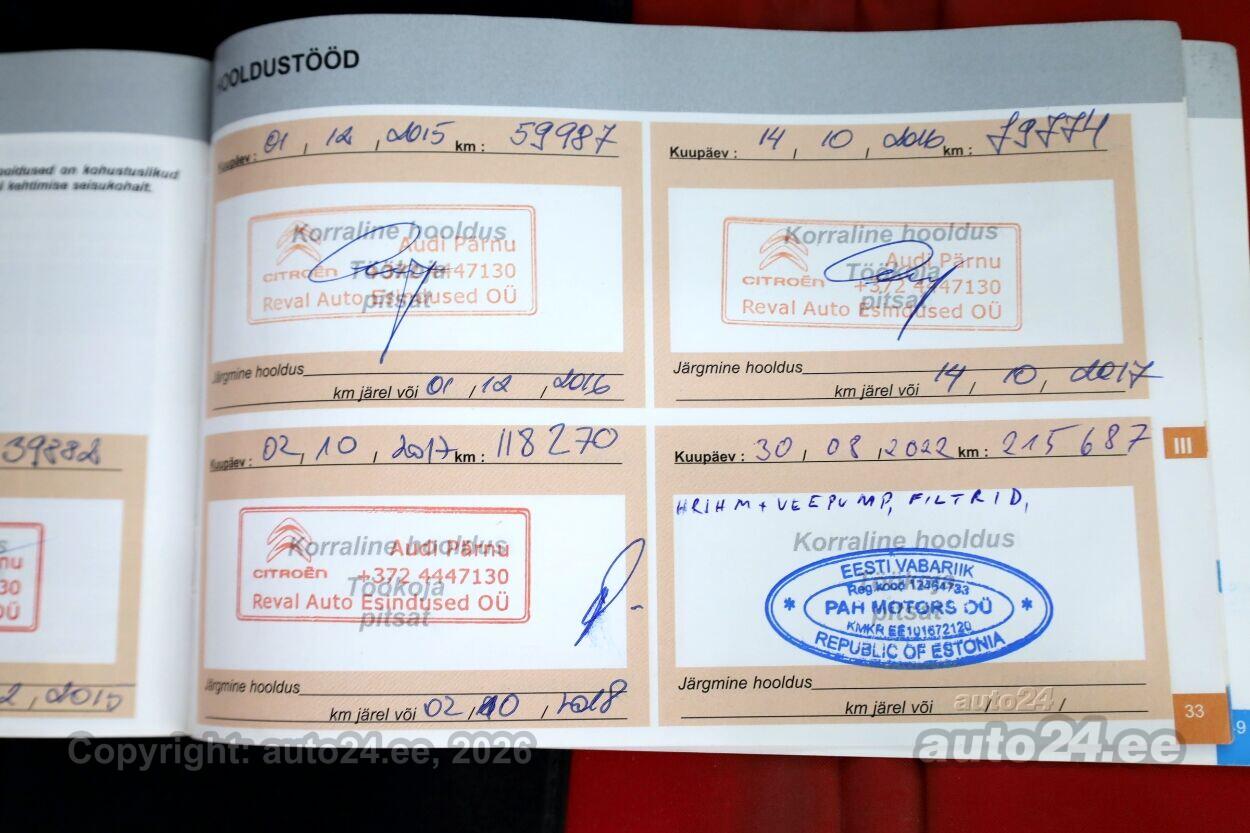 HOOLDUSTÖÖD
kehtimise seisukohalt.
39882
2, 2015
Kuupäev: 01, 12, 2015 km: 59987
Korraline hooldus
Töökoja
pitsat
CITROËN
Audi Pärnu
+372 4447130
Reval Auto Esindused OÜ
Järgmine hooldus
km järel või 01, 12, 2016
Kuupäev: 14, 10, 2016 km: 79774
Korraline hooldus
Töökoja
pitsat
CITROËN
Audi Pärnu
+372 4447130
Reval Auto Esindused OÜ
Järgmine hooldus
km järel või 14, 10, 2017
Kuupäev: 02, 10, 2017 km: 118270
Korraline hooldus
Töökoja
pitsat
CITROËN
Audi Pärnu
+372 4447130
Reval Auto Esindused OÜ
Järgmine hooldus
km järel või 02, 10, 2018
Kuupäev: 30, 08, 2022 km: 215687
HRIHM + VEEPUMP, FILTRID,
Korraline hooldus
pitsat
EESTI VABARIIK
Reg.kood 12464733
* PAH MOTORS OÜ *
KMKR EE101672120
REPUBLIC OF ESTONIA
Järgmine hooldus
km järel või , ,
III
33
auto24
auto24.ee
Copyright: auto24.ee, 2026